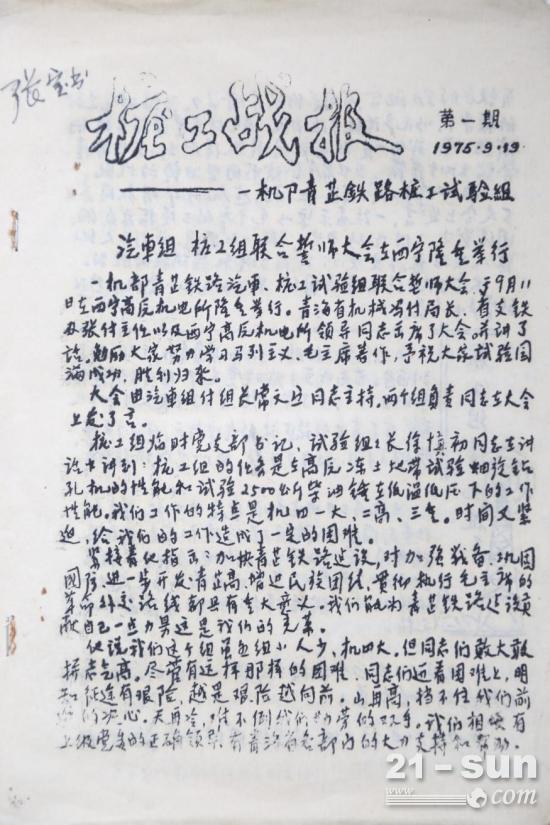 张宝书
桩工战报
第一期
1975.9.19
一机部青芷铁路桩工试验组
汽車组 桩工组联合誓师大会在西宁隆重举行
一机部青芷铁路汽車、桩工试验组联合誓师大会,于9月11
日在西宁高反机电所隆重举行。青海省机械局付局长、省支铁
办张付主任以及西宁高反机电所领导同志出席了大会。并讲了
话。勉励大家努力学习马列主义、毛主席著作,予祝大家试验园
满成功,胜利归来。
大会由汽車组付组长常文 同志主持,两个组负责同志在大会
上发了言。
桩工组临时党支部书记、试验组组长徐慎初同志在讲
话中讲到:桩工组的任务是在高反冻土地带试验 钻
孔机的性能和试验2500公斤柴油锤在低温低压下的工作
性能。我们工作的特点是机四、一大、二高、三冬。时间又紧
迫,给我们的工作造成了一定的困难。
紧接着他指示:加快青芷铁路建设,对加强战备、巩固
国防、进一步开发青芷高、增进民族团结、贯彻执行毛主席的
革命外交路线都具有重大意义。我们能为青芷铁路建设贡
献自己一些力量这是我们的光荣。
他说我们这个组虽然组小人少,机四大,但同志们敢大敢
拼志气高。尽管有这样那样的困难,同志们迎着困难上,明
知征途有艰险,越是艰险越向前。山再高,挡不住我们前
进的决心。天再冷,冻不倒我们勤劳的双手。我们相信有
上级党委的正确领导,有青海省各部门的大力支持和帮助。
21-sun
www. .com